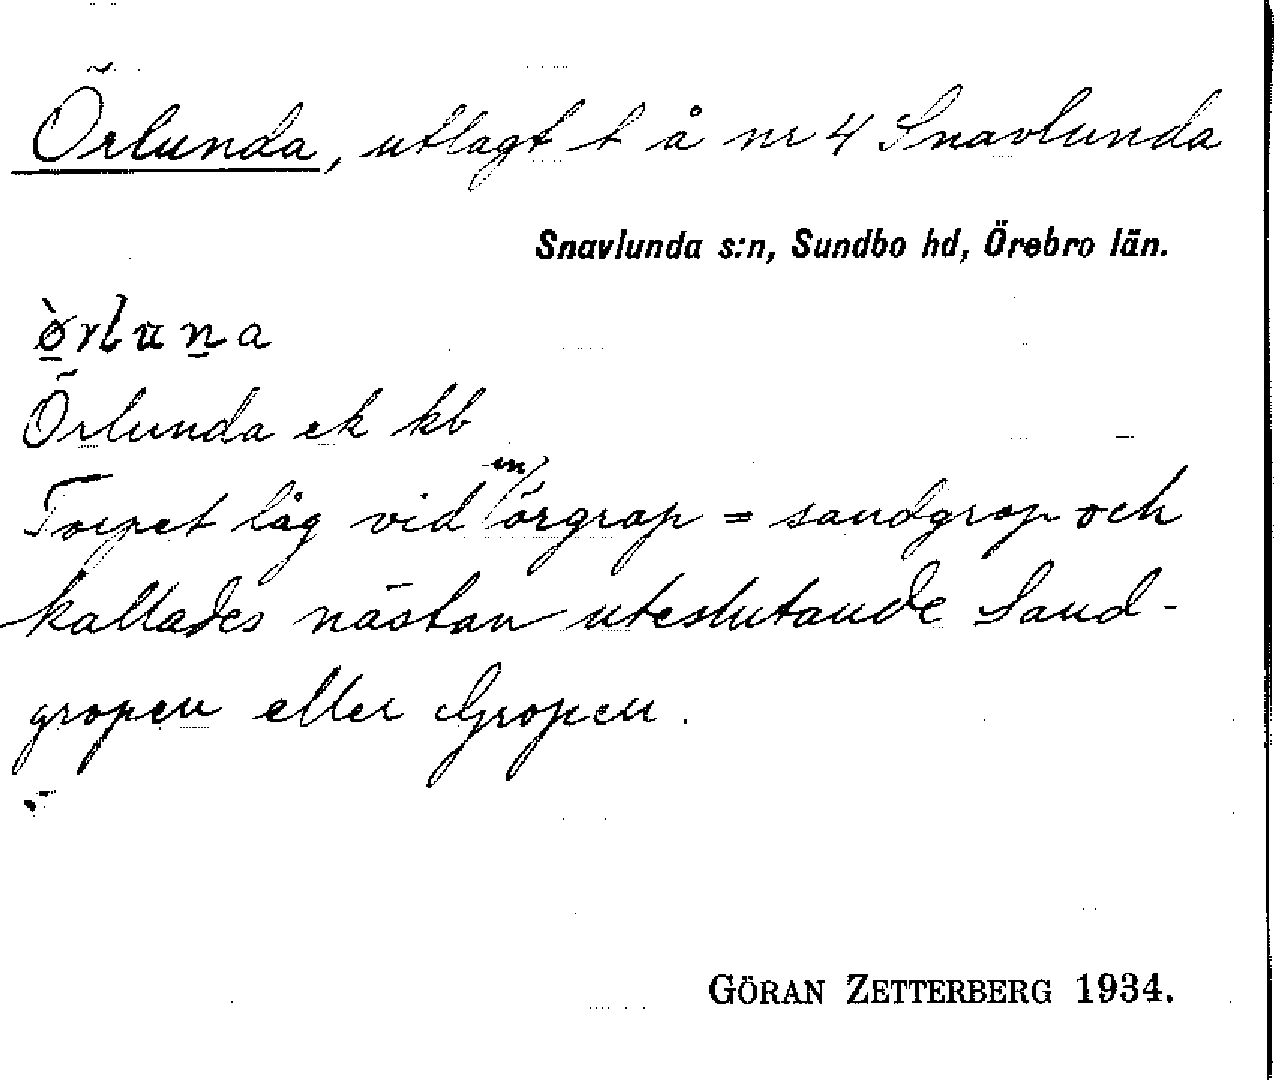 Örlunda, utlagt t å nr 4 Snavlunda
Snavlunda s:n, Sundbo hd, Örebro län.
ø̱̀rLuṉa
Örlunda ek kb
Torpet låg vid en örgrop = sandgrop och
kallades nästan uteslutande Sand-
gropen eller Gropen.
GÖRAN ZETTERBERG 1934.